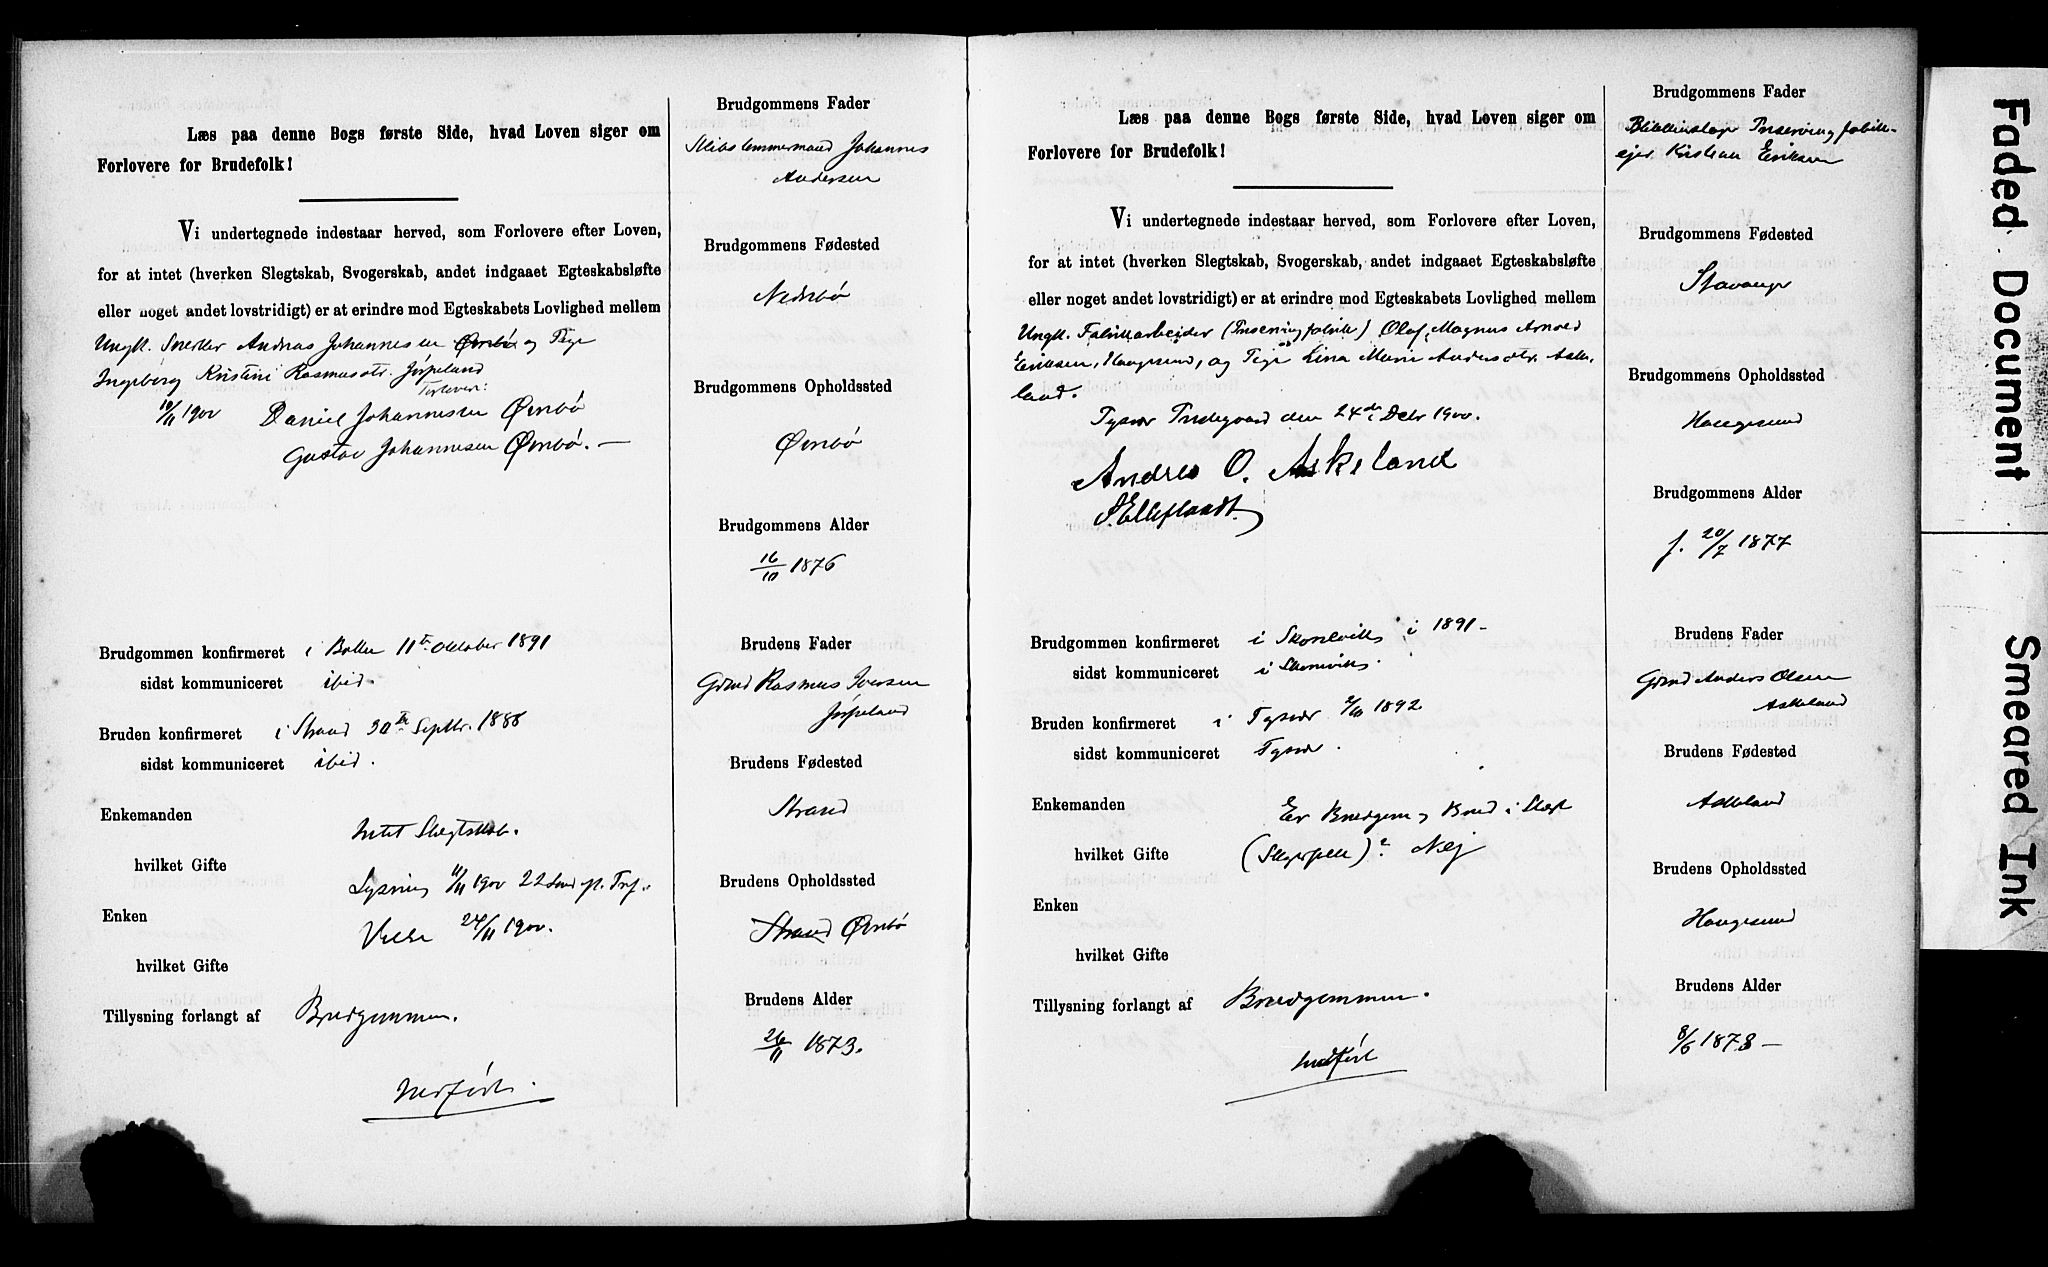 Læs paa denne Bogs første Side, hvad Loven siger om
Forlovere for Brudefolk!
Vi undertegnede indestaar herved, som Forlovere efter Loven,
for at intet (hverken Slegtskab, Svogerskab, andet indgaaet Egteskabsløfte
eller noget andet lovstridigt) er at erindre mod Egteskabets Lovlighed mellem
Ungk. Snedker Andreas Johannesen Ørnbø og Pige
Ingeborg Kristine Rasmusdtr. Jørpeland
Forlovere:
10/11 1900 Daniel Johannesen Ørnbø
Gustav Johannesen Ørnbø. —
Brudgommen konfirmeret i 11te Oktober 1891
sidst kommuniceret ibid.
Bruden konfirmeret i Strand 30te Septbr. 1888
sidst kommuniceret ibid.
Enkemanden
Intet Slegtskab.
hvilket Gifte
Lysning 11/11 1900 22 Sønd. p. Tref.
Enken
Vielse 24/11 1900.
hvilket Gifte
Tillysning forlangt af Brudgommen.
Indført.
Brudgommens Fader
Skibstømmermand Johannes
Andersen
Brudgommens Fødested
Nedrebø
Brudgommens Opholdssted
Ørnbø
Brudgommens Alder
16/10 1876
Brudens Fader
Grmd Rasmus Iversen
Jørpeland
Brudens Fødested
Strand
Brudens Opholdssted
Strand Ørnbø
Brudens Alder
26/11 1873.
Læs paa denne Bogs første Side, hvad Loven siger om
Forlovere for Brudefolk!
Vi undertegnede indestaar herved, som Forlovere efter Loven,
for at intet (hverken Slegtskab, Svogerskab, andet indgaaet Egteskabsløfte
eller noget andet lovstridigt) er at erindre mod Egteskabets Lovlighed mellem
Ungk. Fabrikarbeider (Preserving fabrik) Olaf Magnus Arnold
Eriksen, Haugesund, og Pige Lina Marie Andersdtr. Aske-
land.
Tysvær Prestegaard den 24de Decbr 1900.
Andres O. Askeland
Brudgommen konfirmeret i Skonevik i 1891 -
sidst kommuniceret i Skonevik.
Bruden konfirmeret i Tysvær 2/10 1892
sidst kommuniceret Tysvær.
Enkemanden
Er Brudgom og Brud i Slægt
hvilket Gifte
? Nej
Enken
hvilket Gifte
Tillysning forlangt af Brudgommen.
Indført
Brudgommens Fader
Blikkenslager Preserving fabrik-
ejer Kristian Eriksen
Brudgommens Fødested
Stavanger
Brudgommens Opholdssted
Haugesund
Brudgommens Alder
f. 20/7 1877
Brudens Fader
Grmd Anders Olsen
Askeland
Brudens Fødested
Askeland
Brudens Opholdssted
Haugesund
Brudens Alder
8/6 1878 —
Faded Document
Smeared Ink